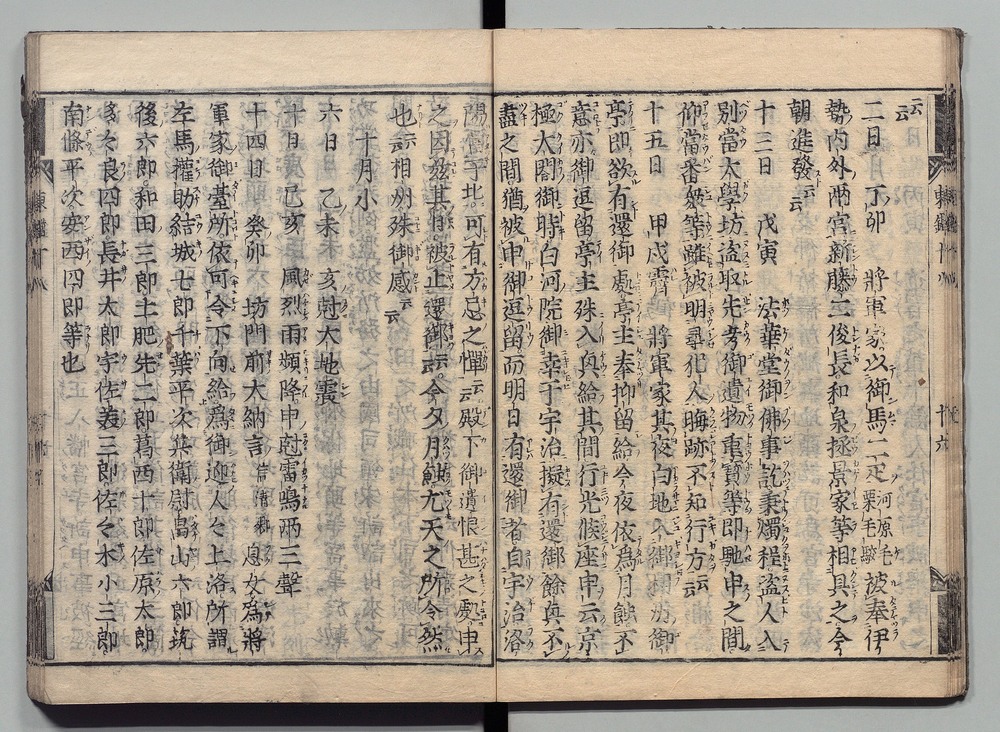 云云
二日 丁卯 将軍家以御馬二疋 河原毛 栗毛駮 被奉伊
勢内外両宮新藤二俊長和泉掾景家等相具之今
朝進発云云
十三日 戊寅 法華堂御佛事訖秉燭程盗人入
別當大學坊盗取先考御遺物重寶等即馳申之間
仰當番衆等雖被明尋犯人晦跡不知行方云云
十五日 甲戌霽 将軍家其夜白地入御御
亭即欲有還御處亭主奉抑留給今夜依為月蝕不
意亦御逗留亭主殊入興給其間行光候座申云京
極太閤御時白河院御幸于宇治擬有還御餘興不
盡之間猶被申御逗留而明日有還御者自宇治洛
陽當于北可有方忌之憚云云殿下御遺恨甚之處申
之因茲其日被止還御云云今夕月蝕尤天之所令然
也云云相州殊御感云云
十月小
六日 乙未 亥尅大地震
十日 己亥 風烈雨頻降申尅雷鳴両三聲
十四日 癸卯 坊門前大納言 信清卿 息女為将
軍家御臺所依可令下向給為御迎人々上洛所謂
左馬權助結城七郎千葉平次兵衛尉畠山六郎筑
後六郎和田三郎土肥先二郎葛西十郎佐原太郎
多々良四郎長井太郎宇佐美三郎佐々木小三郎
南條平次安西四郎等也
東鑑十八
十六